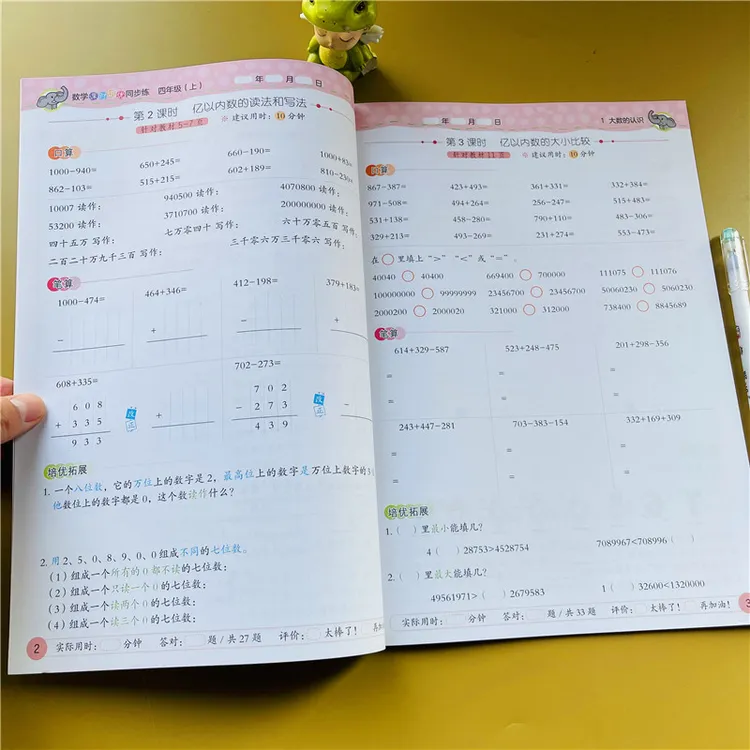 数学 同步练 四年级(上)
年 月 日
第 2 课时 亿以内数的读法和写法
针对教材 5-7 页 ※ 建议用时:10分钟
口算
1000-940= 650+245= 660-190= 1000+83=
862-103= 515+215= 602+189= 810-230=
10007 读作: 940500 读作: 4070800 读作:
53200 读作: 3710700 读作: 200000000 读作:
四十五万 写作: 七万零四十 写作: 六十万零五百 写作:
二百二十万九千三百 写作: 三千零六万三千零六 写作:
笔算
1000-474= 464+346= 412-198= 379+183=
- + - +
608+335= 702-273=
6 0 8
+ 3 3 5
9 3 3
改正
+
7 0 2
- 2 7 3
4 3 9
改正
-
培优拓展
1. 一个八位数,它的万位上的数字是 2,最高位上的数字是万位上数字的
他数位上的数字都是 0,这个数读作什么?
2. 用 2、5、0、8、9、0、0 组成不同的七位数。
(1) 组成一个所有的 0 都不读的七位数:
(2) 组成一个只读一个 0 的七位数:
(3) 组成一个读两个 0 的七位数:
(4) 组成一个读三个 0 的七位数:
2 实际用时: 分钟 答对: 题 / 共 27 题 评价: 太棒了! 再加
年 月 日 1 大数的认识
第 3 课时 亿以内数的大小比较
针对教材 11 页 ※ 建议用时:10分钟
口算
867-387= 423+493= 361+331= 332+384=
971-508= 494+264= 256-247= 515+483=
531+138= 458-280= 790+110= 483-306=
329+213= 493-269= 231+274= 553-473=
在○里填上“>”“<”或“=”。
40040 ○ 40400 669400 ○ 700000 111075 ○ 111076
100000000 ○ 99999999 23456700 ○ 23456700 50060230 ○ 5060230
2000200 ○ 2000020 321000 ○ 312000 738400 ○ 8845689
笔算
614+329-587 523+248-475 201+298-356
= = =
= = =
243+447-281 703-383+154 332+169+309
= = =
= = =
培优拓展
1.( )里最小能填几?
4( )28753>4528754 7089967<708996( )
2.( )里最大能填几?
49561971>( )2679583 1( )32600<1320000
实际用时: 分钟 答对: 题 / 共 33 题 评价: 太棒了! 再加油! 3